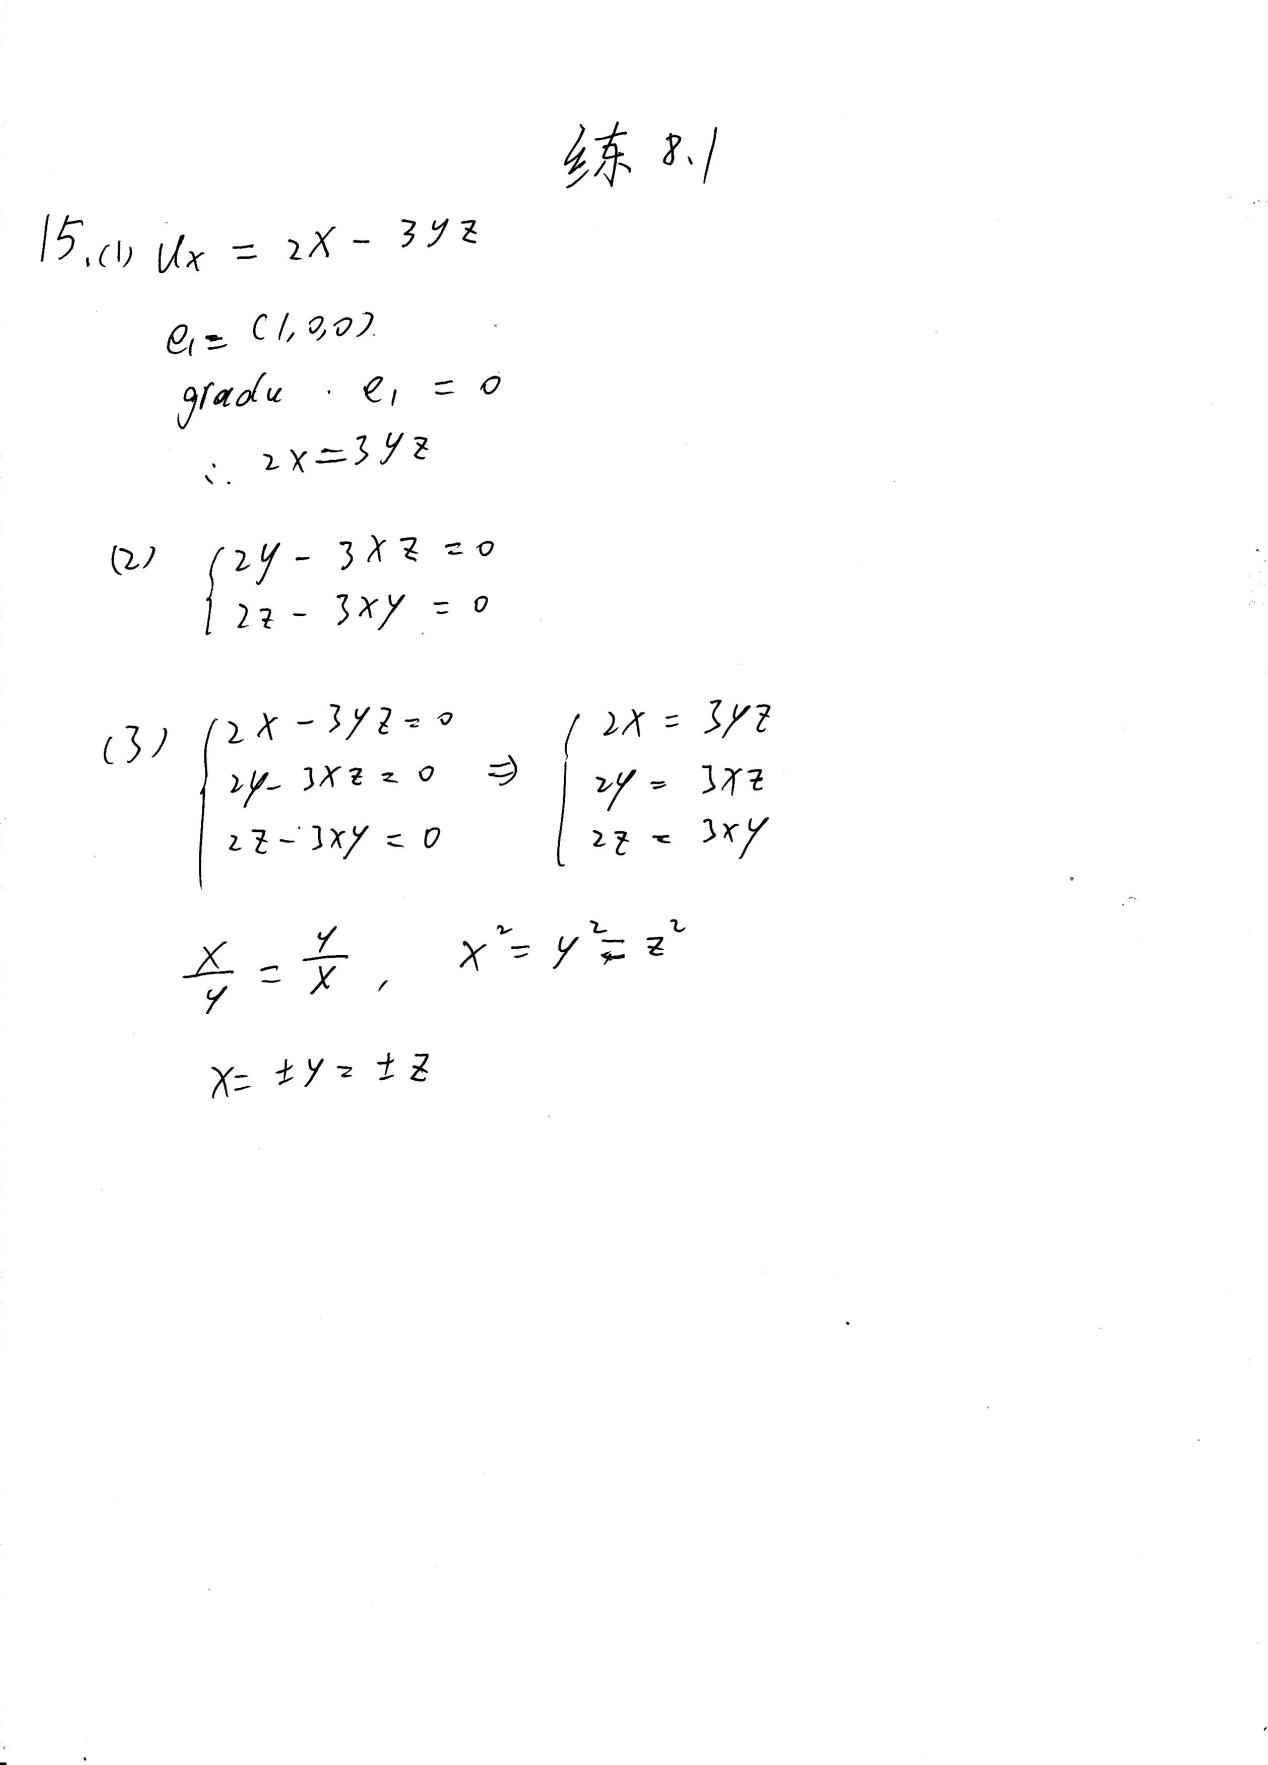 练 8.1
15.(1) Ux = 2x - 3yz
e₁ = (1,0,0)
gradu · e₁ = 0
∴ 2x = 3yz
(2) { 2y - 3xz = 0
2z - 3xy = 0
(3) { 2x - 3yz = 0 ⇒ { 2x = 3yz
2y - 3xz = 0 2y = 3xz
2z - 3xy = 0 2z = 3xy
x/y = y/x , x² = y² = z²
x = ±y = ±z